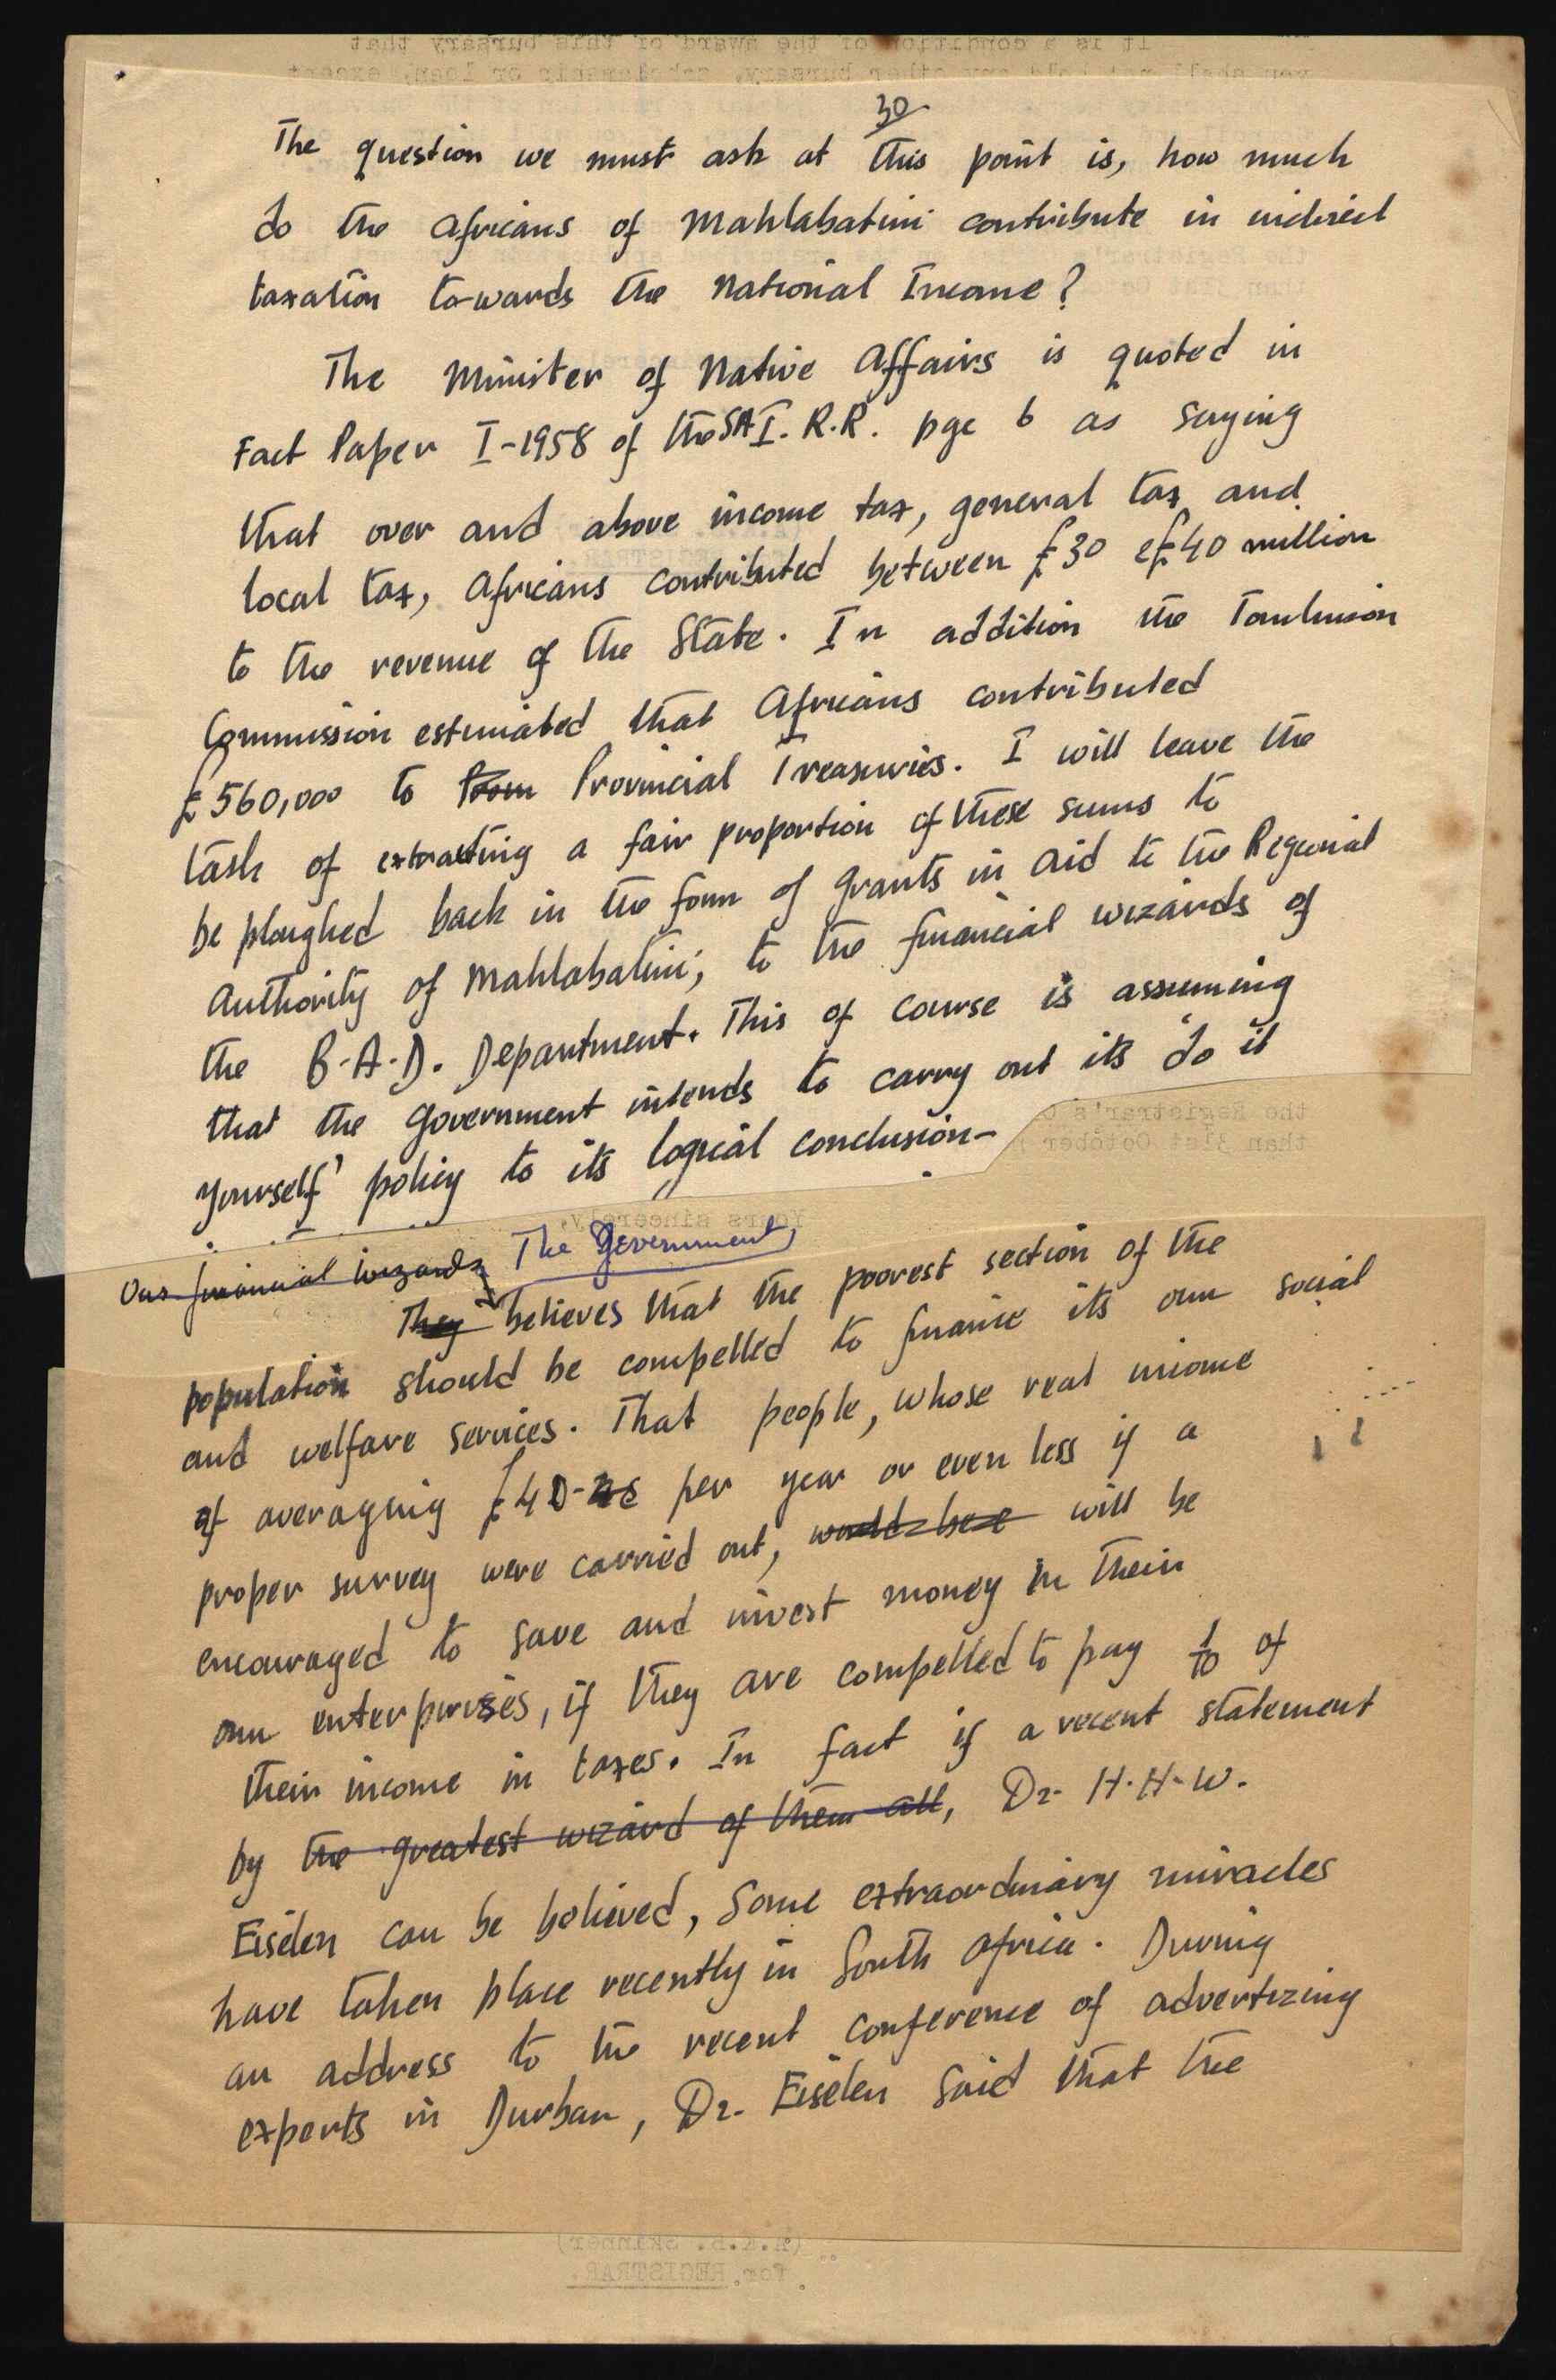 30
The question we must ask at this point is, how much
do the Africans of Mahlabatini contribute in indirect
taxation towards the National Income?
The Minister of Native Affairs is quoted in
Fact Paper I-1958 of the SA I.R.R. pge 6 as saying
that over and above income tax, general tax and
local tax, Africans contributed between £30 & £40 million
to the revenue of the State. In addition the Tomlinson
Commission estimated that Africans contributed
£560,000 to From Provincial Treasuries. I will leave the
task of extracting a fair proportion of these sums to
be ploughed back in the form of grants in aid to the Regional
Authority of Mahlabatini, to the financial wizards of
the B.A.D. Department. This of course is assuming
that the Government intends to carry out its 'do it
yourself' policy to its logical conclusion-
Our financial wizards The Government
They believes that the poorest section of the
population should be compelled to finance its own social
and welfare services. That people, whose real income
of averaging £40- per year or even less if a
proper survey were carried out, would be will be
encouraged to save and invest money in their
own enterprises, if they are compelled to pay 1/10 of
their income in taxes. In fact if a recent statement
by the greatest wizard of them all, Dr. H.H.W.
Eiselen can be believed, some extraordinary miracles
have taken place recently in South Africa. During
an address to the recent conference of advertizing
experts in Durban, Dr. Eiselen said that the
It is a condition of the award of this bursary that
you shall not hold any other bursary, scholarship or loan, except
the Registrar's
than 31st October
Yours sincerely,
(A.K.B. Skinner)
for REGISTRAR.